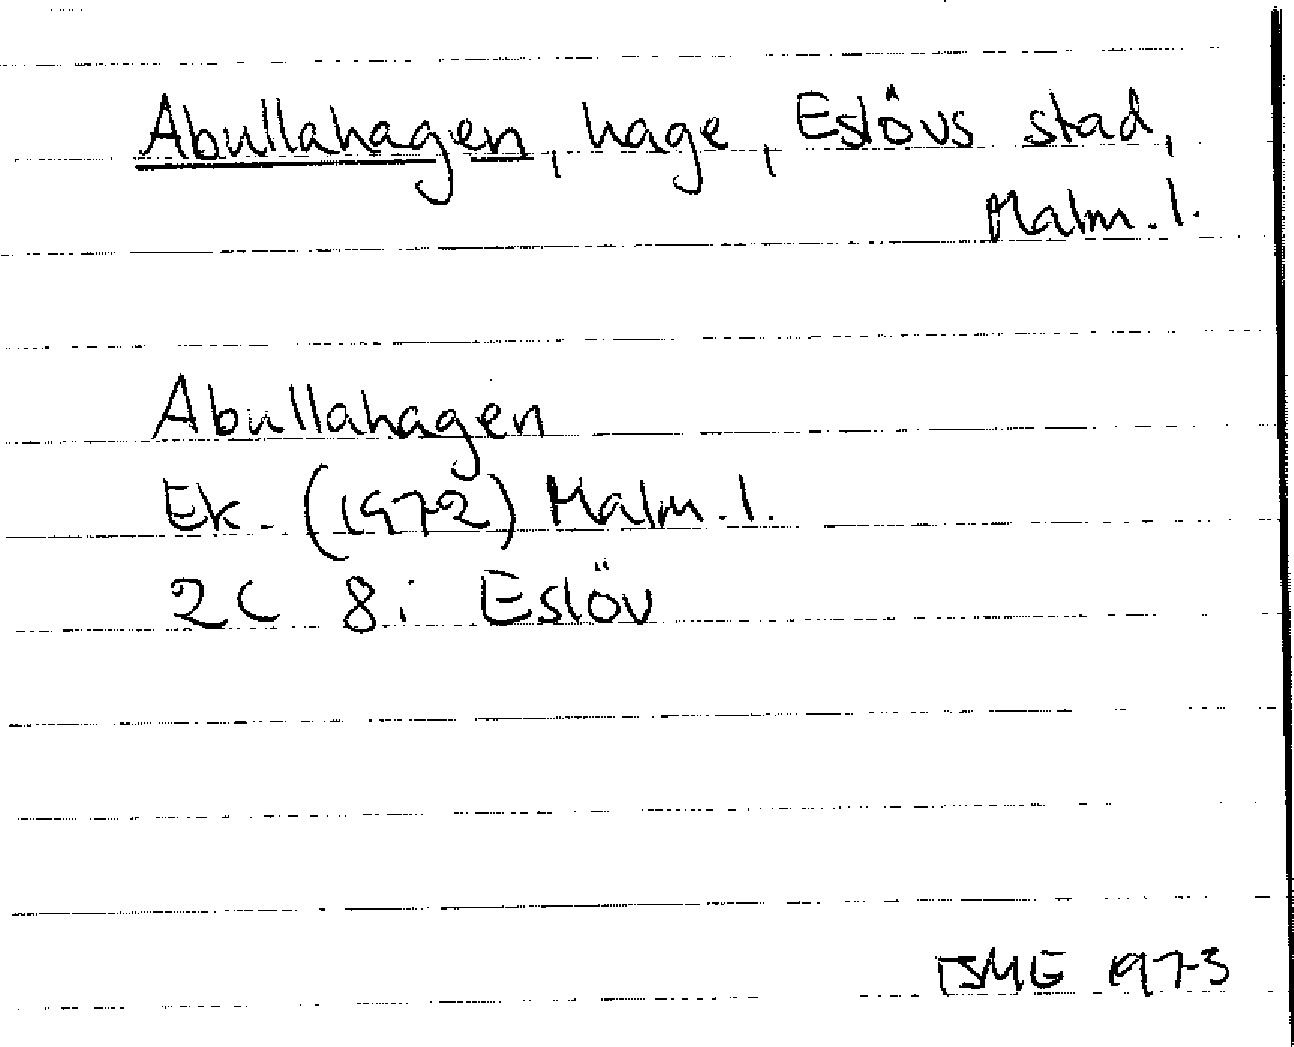 Abullahagen, hage, Eslövs stad,
Malm. l.
Abullahagen
Ek. (1972) Malm. l.
2C 8i Eslöv
1973